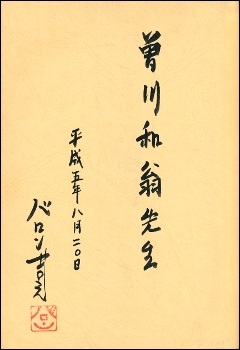 曽川和翁先生
平成五年八月二〇日
バロン吉元